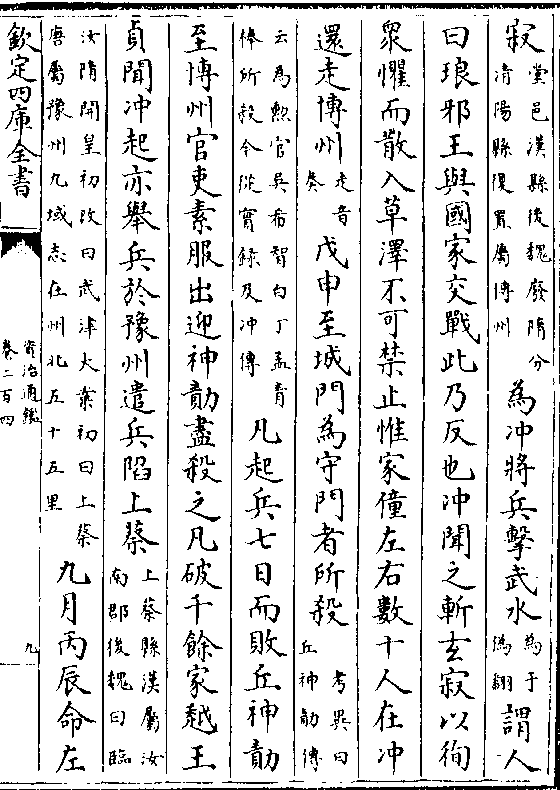 寂堂邑漢縣後魏廢隋分
清陽縣復置屬博州為冲將兵擊武水為于
偽翻謂人
曰琅邪王與國家交戰此乃反也冲聞之斬玄寂以徇
衆懼而散入草澤不可禁止惟家僮左右數十人在冲
還走博州走音
奏戊申至城門為守門者所殺考異曰
丘神勣傳
云為勲官吳希智白丁孟青
棒所殺今從實錄及冲傳凡起兵七日而敗丘神勣
至博州官吏素服出迎神勣盡殺之凡破千餘家越王
貞聞冲起亦舉兵於豫州遣兵陷上蔡上蔡縣漢屬汝
南郡後魏曰臨
汝隋開皇初改曰武津大業初曰上蔡
唐屬豫州九域志在州北五十五里九月丙辰命左
欽定四庫全書
資治通鑑
卷二百四
九